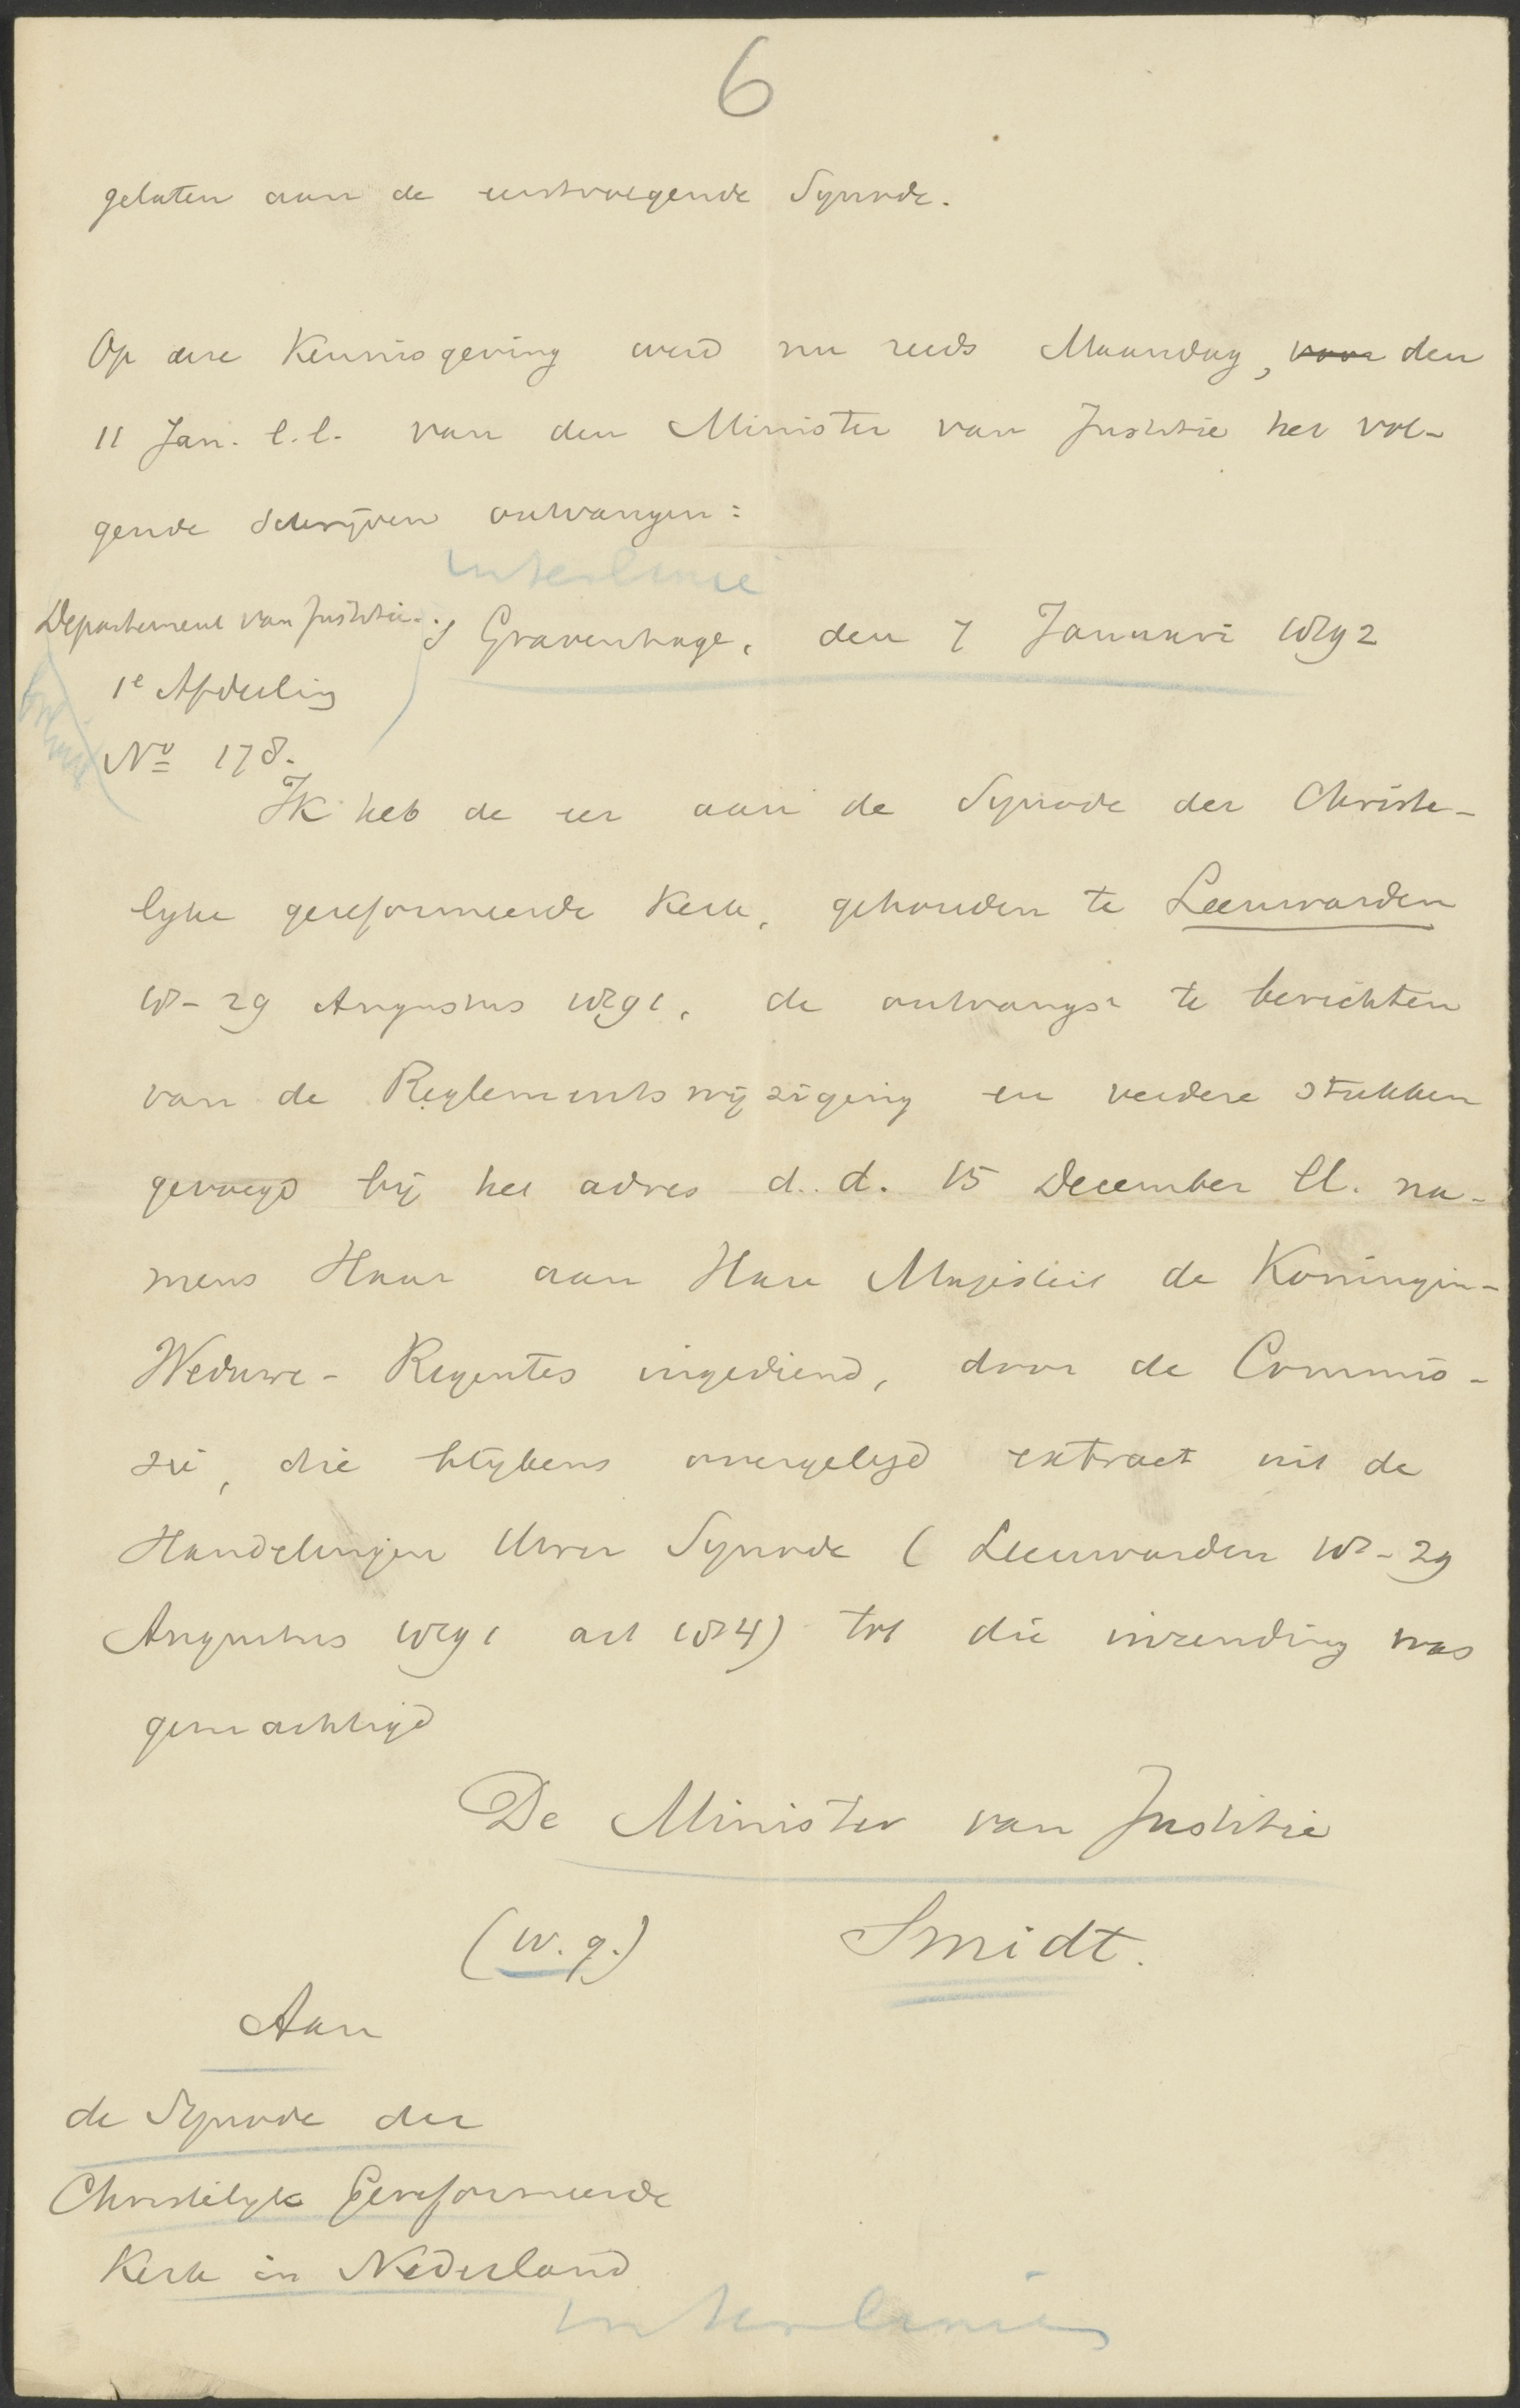 6
gelaten aan de eerstvolgende Synode.
Op deze Kennisgeving werd nu reeds Maandag, voor den
11 Jan. l.l. van den Minister van Justitie het vol-
gende schrijven ontvangen:
interlinie
Departement van Justitie. 's Gravenhage, den 7 Januari 1892
1e Afdeeling
No 178.
Ik heb de eer aan de Synode der Christe-
lyke gereformeerde Kerk, gehouden te Leeuwarden
18-29 Augustus 1891, de ontvangst te berichten
van de Reglementswijziging en verdere stukken
gevoegd bij het adres d.d. 15 December ll. na-
mens Haar aan Hare Majesteit de Koningin-
Weduwe-Regentes ingediend, door de Commis-
sie, die blijkens overgelegd extract uit de
Handelingen Uwer Synode (Leeuwarden 18-29
Augustus 1891 art 184) tot die inzending was
gemachtigd
De Minister van Justitie
(w.g.) Smidt.
Aan
de Synode der
Christelyk Gereformeerde
Kerk in Nederland
interlinie